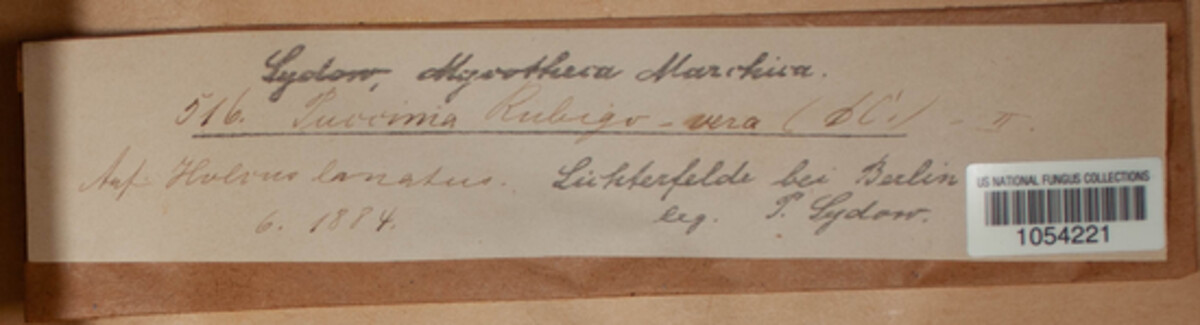 Sydow, Mycotheca Marchica.
516. Puccinia Rubigo-vera (DC.) - II.
Auf Holcus lanatus. Lichterfelde bei Berlin
6. 1884. leg. P. Sydow.
US NATIONAL FUNGUS COLLECTIONS
1054221